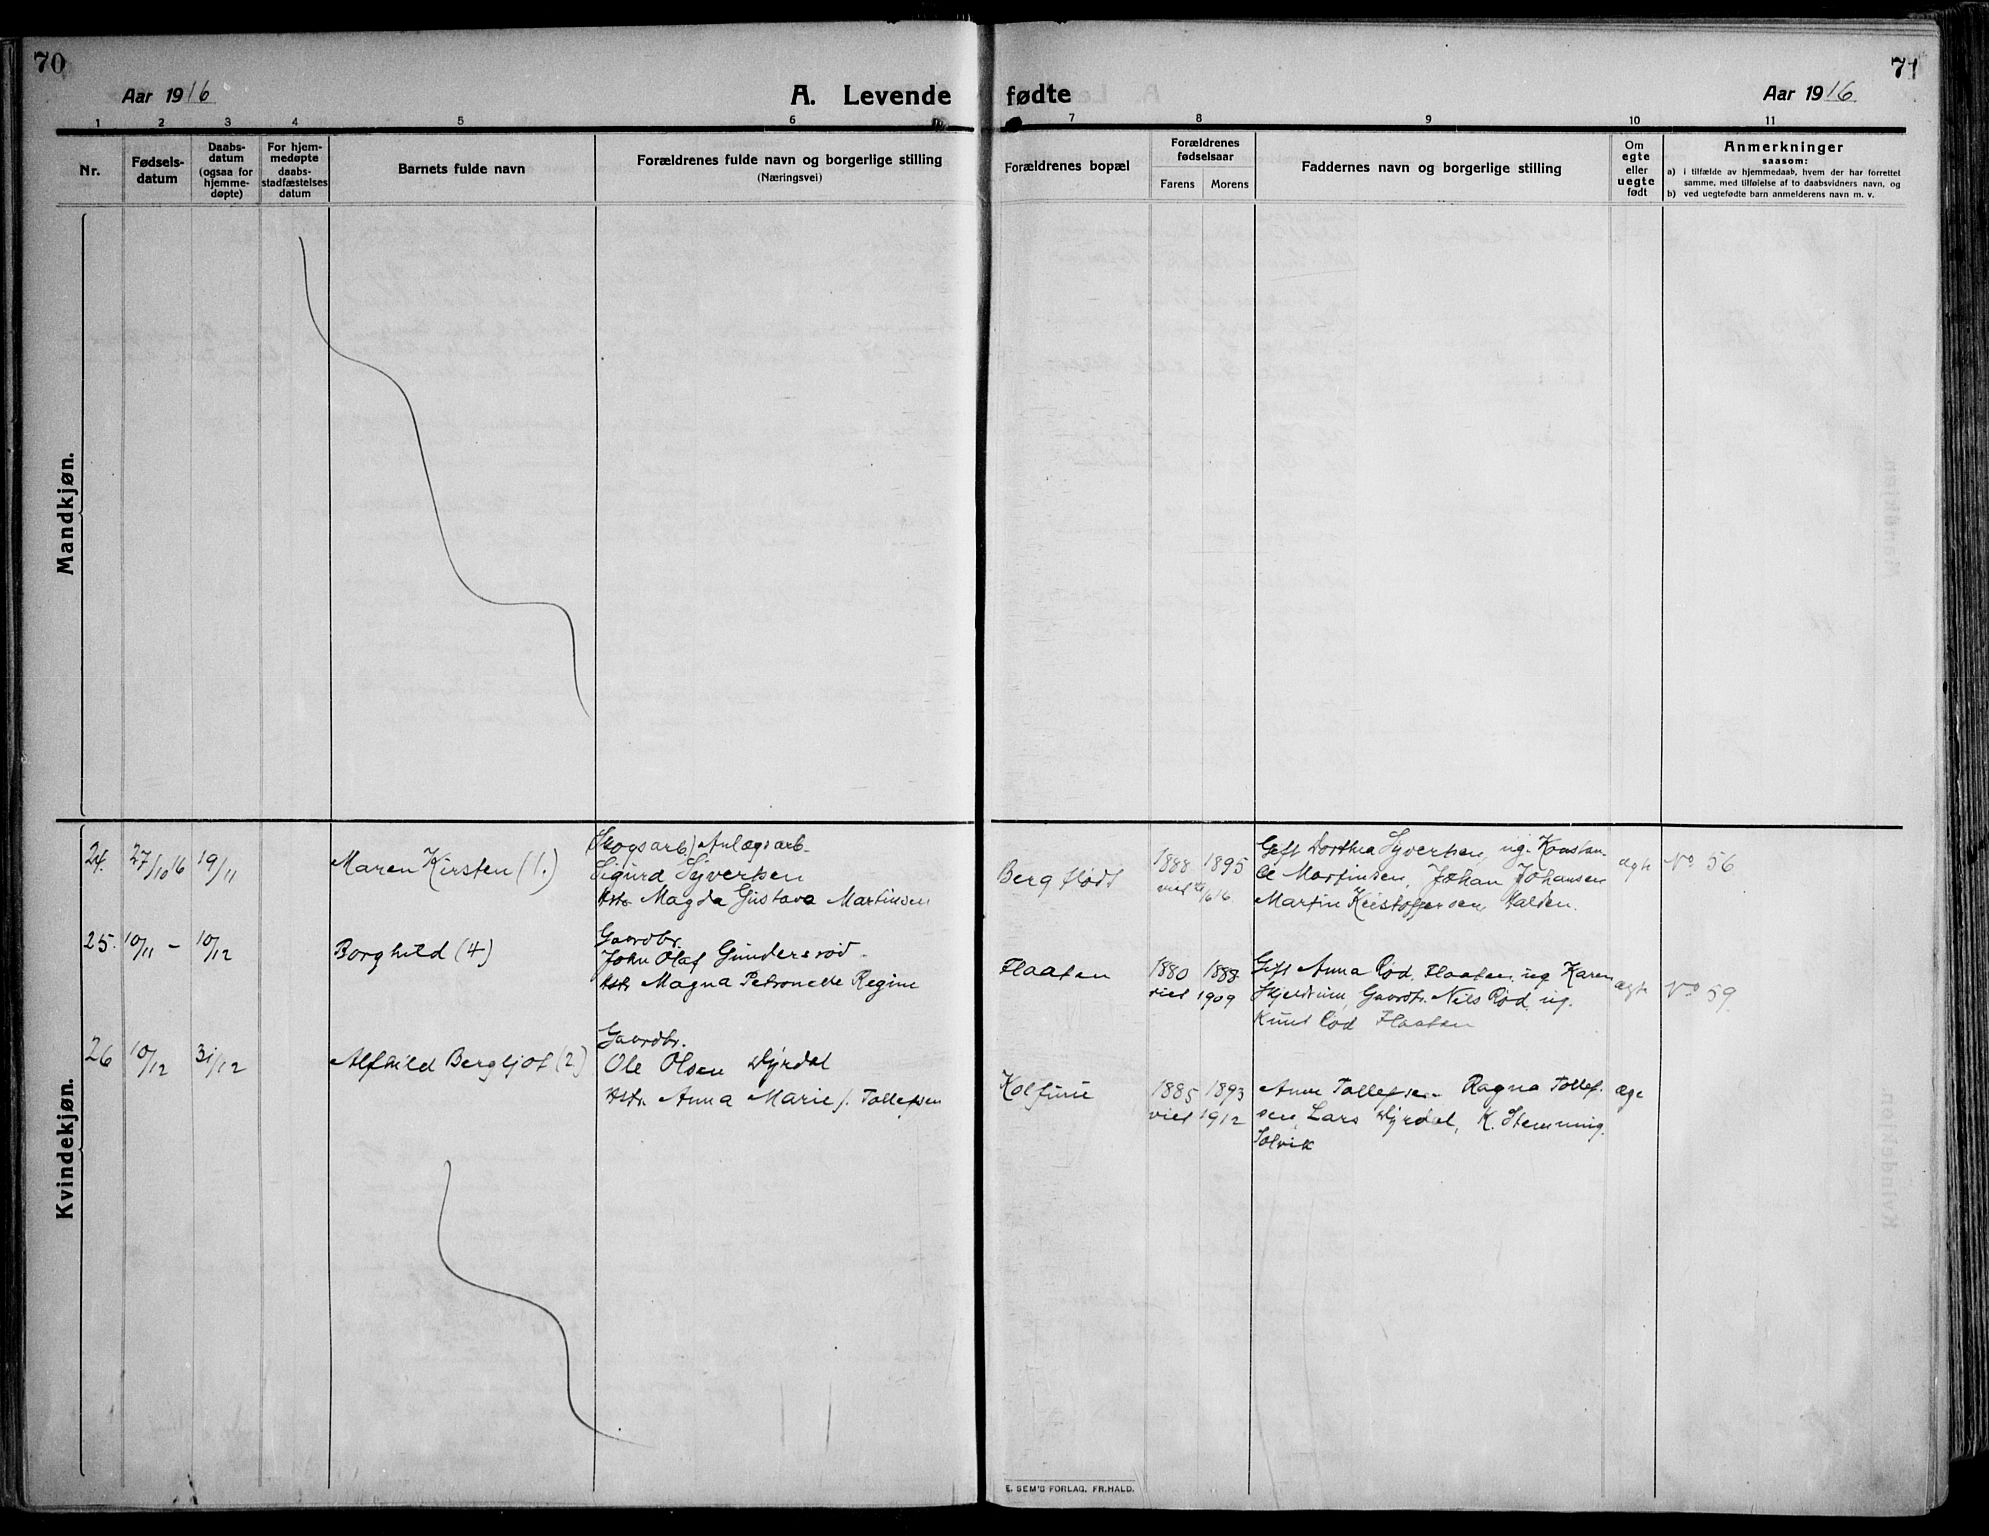 70
71
Aar 1916
A. Levende fødte
Aar 1916
1 2 3 4 5 6 7 8 9 10 11
Nr.
Fødsels-
datum
Daabs-
datum
(ogsaa for
hjemme-
døpte)
For hjem-
medøpte
daabs-
stadfæstelses
datum
Barnets fulde navn
Forældrenes fulde navn og borgerlige stilling
(Næringsvei)
Forældrenes bopæl
Forældrenes
fødselsaar
Farens Morens
Faddernes navn og borgerlige stilling
Om
egte
eller
uegte
født
Anmerkninger
saasom:
a) i tilfælde av hjemmedaab, hvem der har forrettet
samme, med tilføielse af to daabsvidners navn, og
b) ved uegtefødte barn anmelderens navn m. v.
Mandkjøn.
Kvindekjøn.
24. 27/10 16 19/11
Maren Kirsten (1.)
(Skogsarb.) Anlægsarb.
Sigurd Syvertsen
Hstr Magda Gustava Martinsen
Berg flødt
1888 1895
viet 16.
Gift Dorthea Syvertsen, ug. Konstan-
ce Martinsen, Johan Johansen
Martin Kristoffersen, Halden.
ægte
No 56
25. 10/11 - 10/12
Borghild (4)
Gaardbr.
John Olaf Gundersrød.
Hstr Magna Petronelle Regine
Flaaten
1880 1888
viet 1909
Gift Anna Rød, Flaaten, ug Karen
Skjeltrum, Gaardbr. Nils Rød, ug.
Knut Rød Flaaten
ægte
No 59
26 10/12 31/12
Alfhild Bergljot (2)
Gaardbr.
Ole Olsen Dyrdal
Hstr. Anna Marie f. Tollefsen
Kolfurie
1885 1893
viet 1912
Anne Tollefsen Ragna Tollef-
sen, Lars Dyrdal, K. Stemming
Solvik
æge
E. SEM'S FORLAG. FR.HALD.